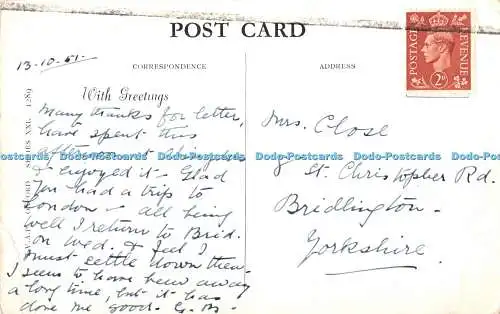 POST CARD
13-10-51.
CORRESPONDENCE
ADDRESS
POSTAGE REVENUE
2D
With Greetings
Many thanks for letter,
have spent this
afternoon at
& enjoyed it - Glad
you had a trip to
London - all being
well I return to Brid.
on Wed. & feel I
must settle down then
I seem to have been away
a long time, but it has
done me good. G.B.
Mrs. Close
8 St. Christopher Rd.
Bridlington.
Yorkshire.
Dodo-Postcards Dodo-Postcards Dodo-Postcards Dodo-Postcards Dodo-Postcards Dodo-Postcards